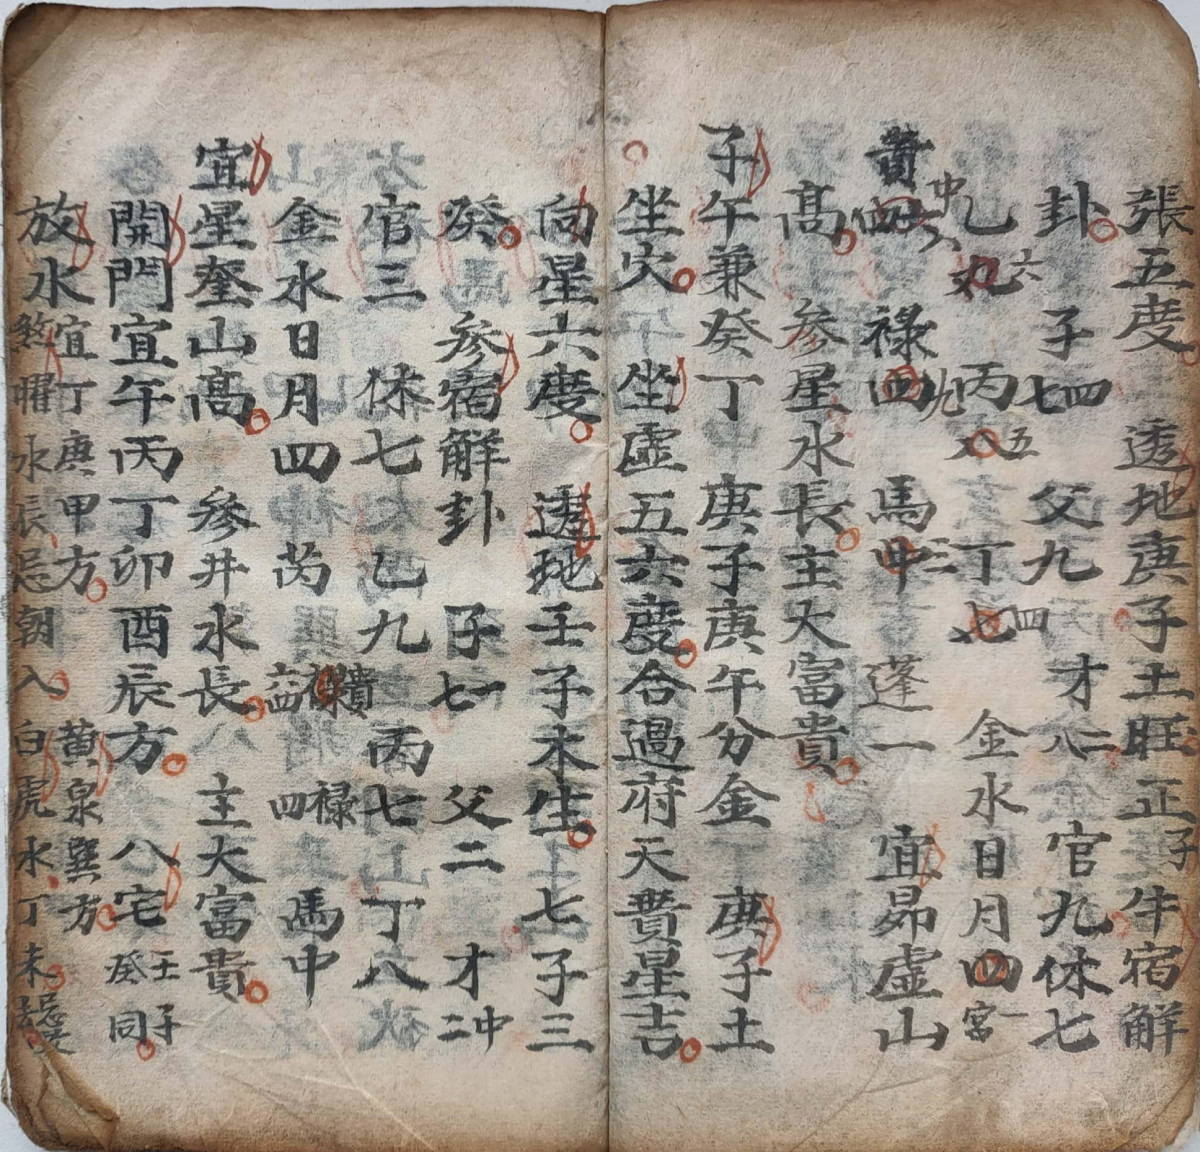 張五度 透地庚子土旺正子牛宿解
卦 子七四 父九 才八二 官九休七
乙九六 丙八五 丁七四 金水日月四一宮
貴四中六 祿四九 馬中三 蓬一 宜昴虛山
高 參星水長主大富貴
子午兼癸丁 庚子庚午分金 庚子土
坐穴 坐虛五六度合過府天貴星吉
向星六度 透地壬子木生 七子三
癸 參宿解卦 子七一 父二 才二中
官三 休七 乙九 丙七 丁八
金水日月四 芮 貴 祿四 馬中
宜星奎山高 參井水長 主大富貴
開門宜午丙丁卯酉辰方 八宅壬子癸同
放水宜丁庚甲方 黃泉巽方
煞曜水辰忌朝入 白虎水丁未